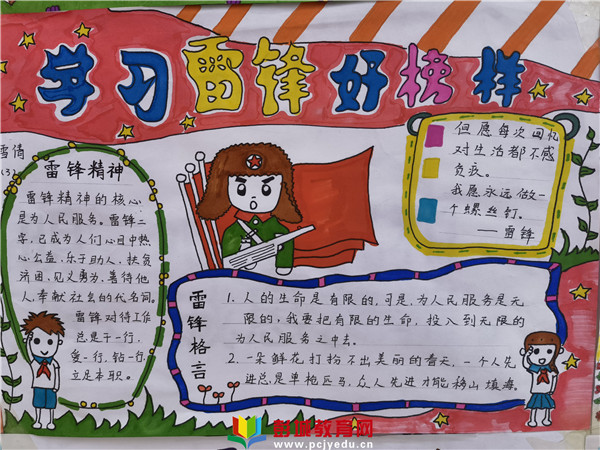 学习雷锋好榜样
雪倩
(3)
雷锋精神
雷锋精神的核心
是为人民服务。雷锋二
字,已成为人们心目中热
心公益、乐于助人、扶贫
济困、见义勇为、善待他
人,奉献社会的代名词。
雷锋对待工作
总是干一行,
爱一行,钻一行,
立足本职。
但愿每次回忆
对生活都不感
负疚。
我愿永远做一
个螺丝钉。
——雷锋
雷锋格言
1. 人的生命是有限的,可是,为人民服务是无
限的,我要把有限的生命,投入到无限的
为人民服务之中去。
2. 一朵鲜花打扮不出美丽的春天,一个人先
进总是单枪匹马,众人先进才能移山填海。
彭城教育网
www.pcjyedu.cn